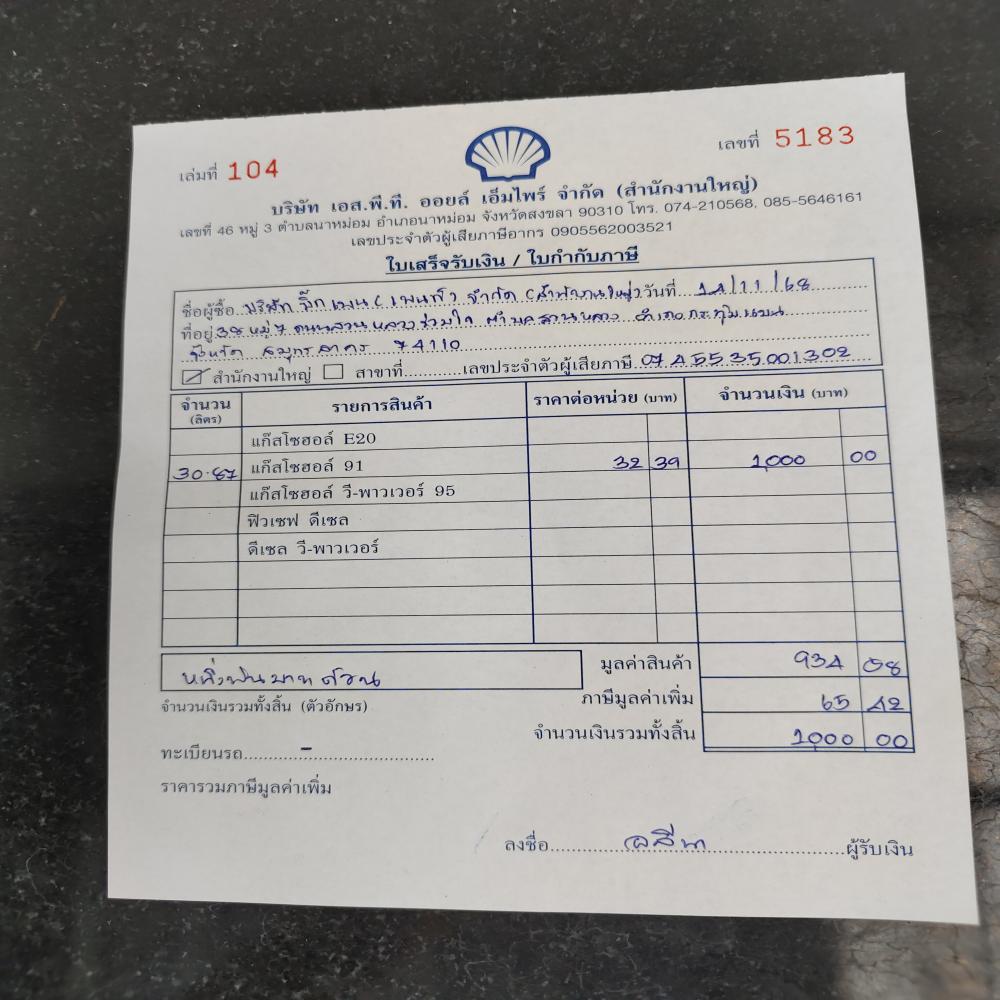 เล่มที่ 104
เลขที่ 5183
บริษัท เอส.พี.ที. ออยล์ เอ็มไพร์ จำกัด (สำนักงานใหญ่)
เลขที่ 46 หมู่ 3 ตำบลนาหม่อม อำเภอนาหม่อม จังหวัดสงขลา 90310 โทร. 074-210568, 085-5646161
เลขประจำตัวผู้เสียภาษีอากร 0905562003521
ใบเสร็จรับเงิน / ใบกำกับภาษี
ชื่อผู้ซื้อ บริษัท จำกัด (สำนักงานใหญ่) วันที่ 14/11/68
ที่อยู่ 38 หมู่ 7 ถนนสวนหลวงร่วมใจ ตำบลสวนหลวง อำเภอกระทุ่มแบน
จังหวัด สมุทรสาคร 74110
สำนักงานใหญ่ สาขาที่ เลขประจำตัวผู้เสียภาษี 0745535001302
จำนวน (ลิตร) รายการสินค้า ราคาต่อหน่วย (บาท) จำนวนเงิน (บาท)
แก๊สโซฮอล์ E20
30.87 แก๊สโซฮอล์ 91 32 39 1,000 00
แก๊สโซฮอล์ วี-พาวเวอร์ 95
ฟิวเซฟ ดีเซล
ดีเซล วี-พาวเวอร์
มูลค่าสินค้า 934 58
หนึ่งพันบาทถ้วน
ภาษีมูลค่าเพิ่ม 65 42
จำนวนเงินรวมทั้งสิ้น (ตัวอักษร)
จำนวนเงินรวมทั้งสิ้น 1,000 00
ทะเบียนรถ -
ราคารวมภาษีมูลค่าเพิ่ม
ลงชื่อ ผู้รับเงิน